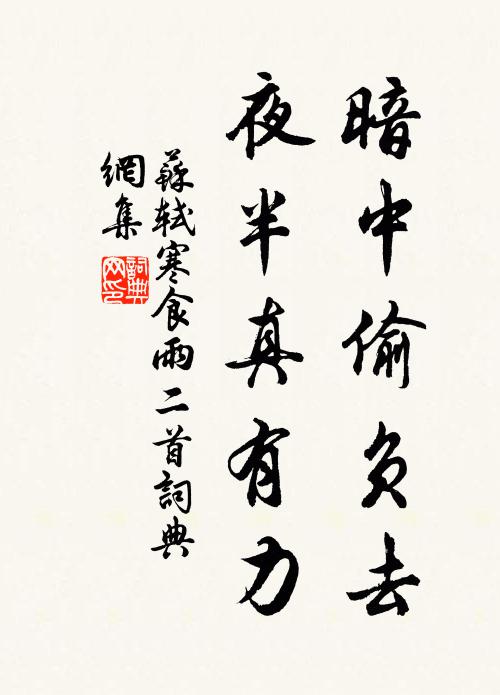 暗中偷負去
夜半真有力
蘇軾寒食雨二首詞典
網集
詞典網印